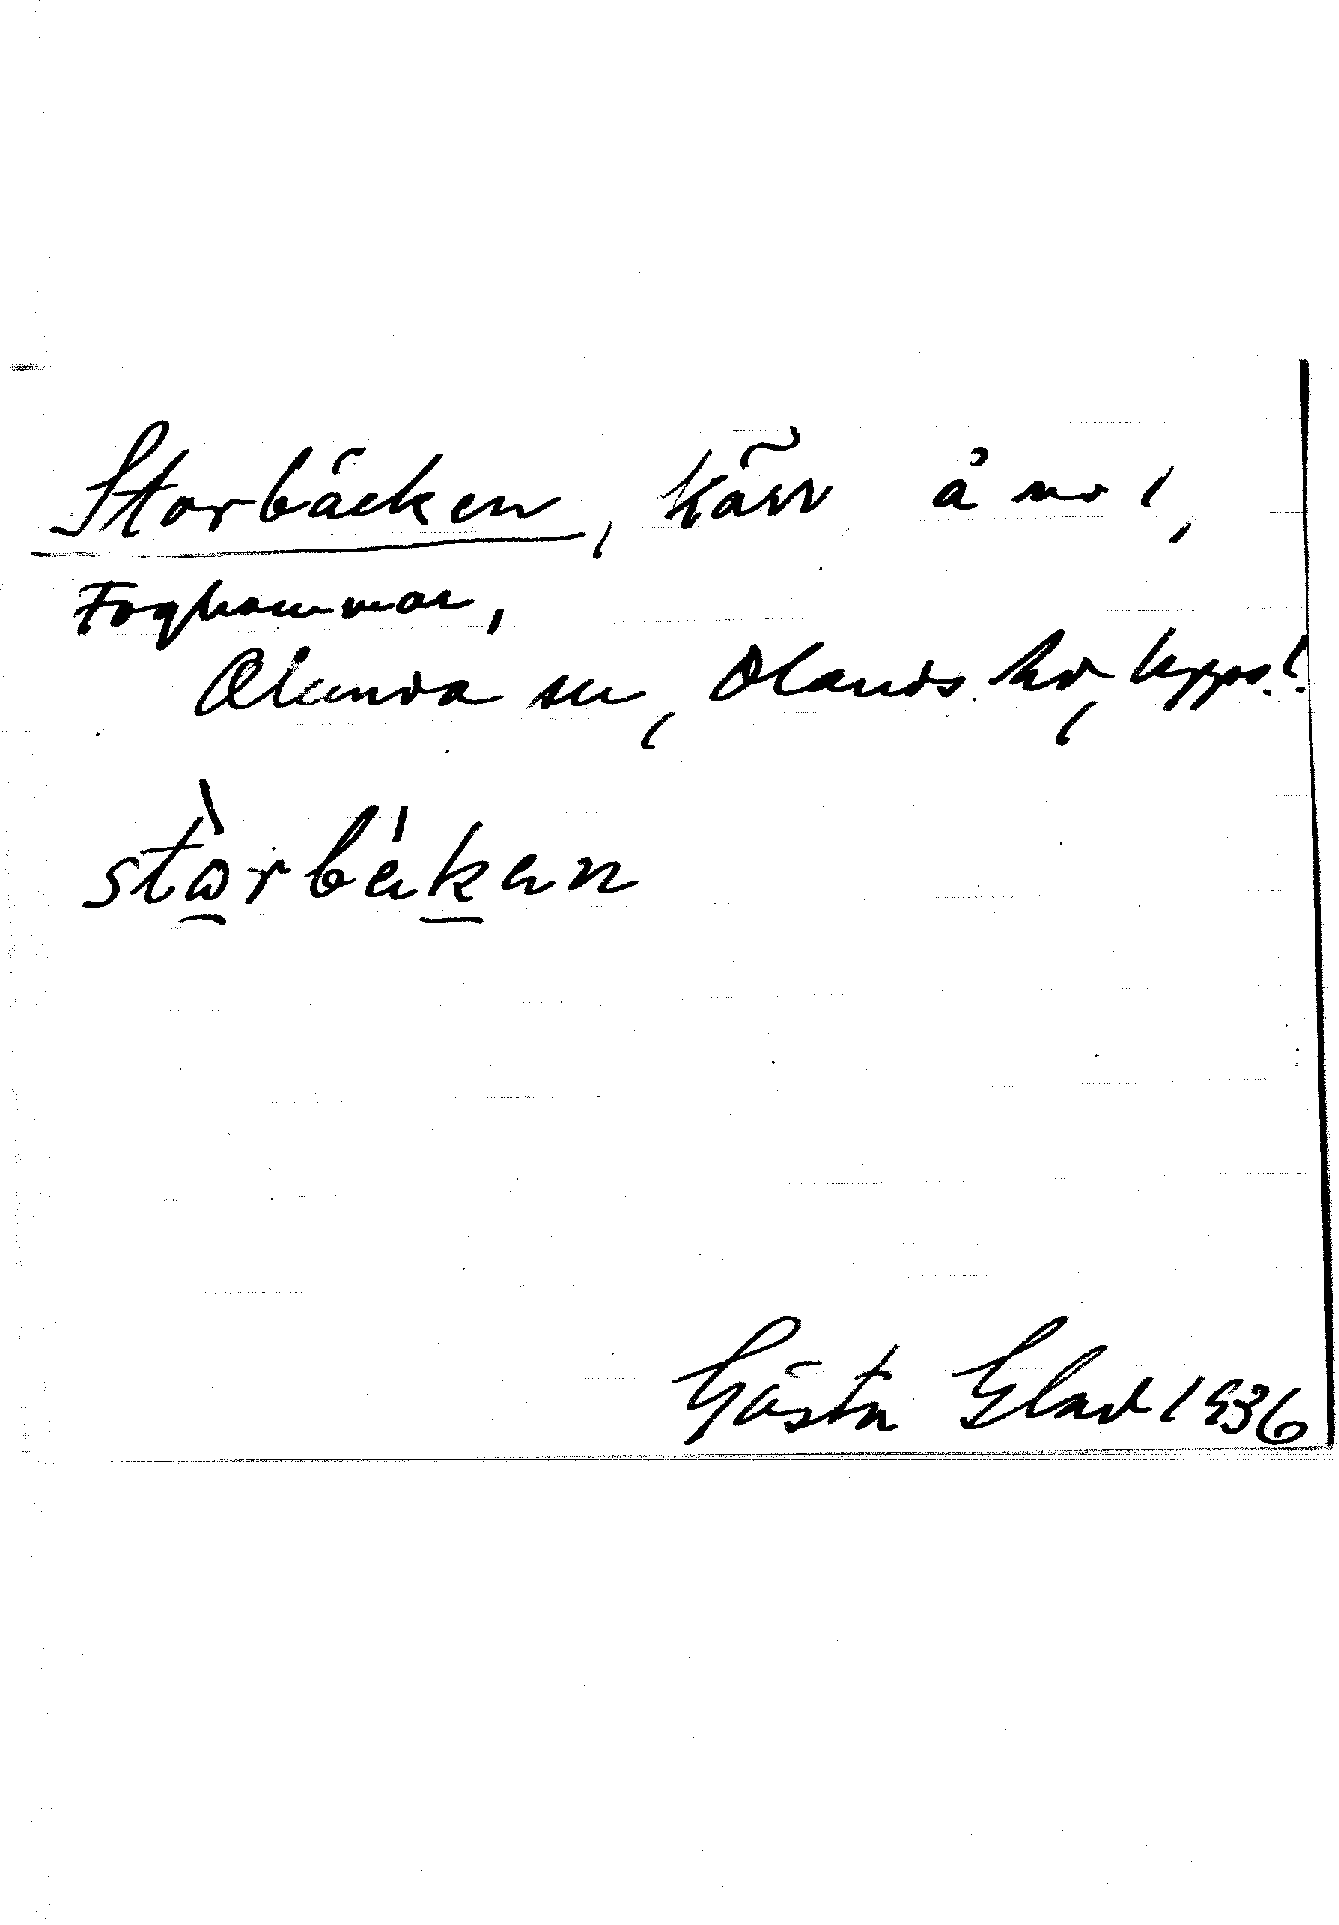 Storbäcken, kärr å nr 1,
Foghammar,
Alunda sn, Olands hd, Uppsl.
stòrbäken
Gösta Glad 1936